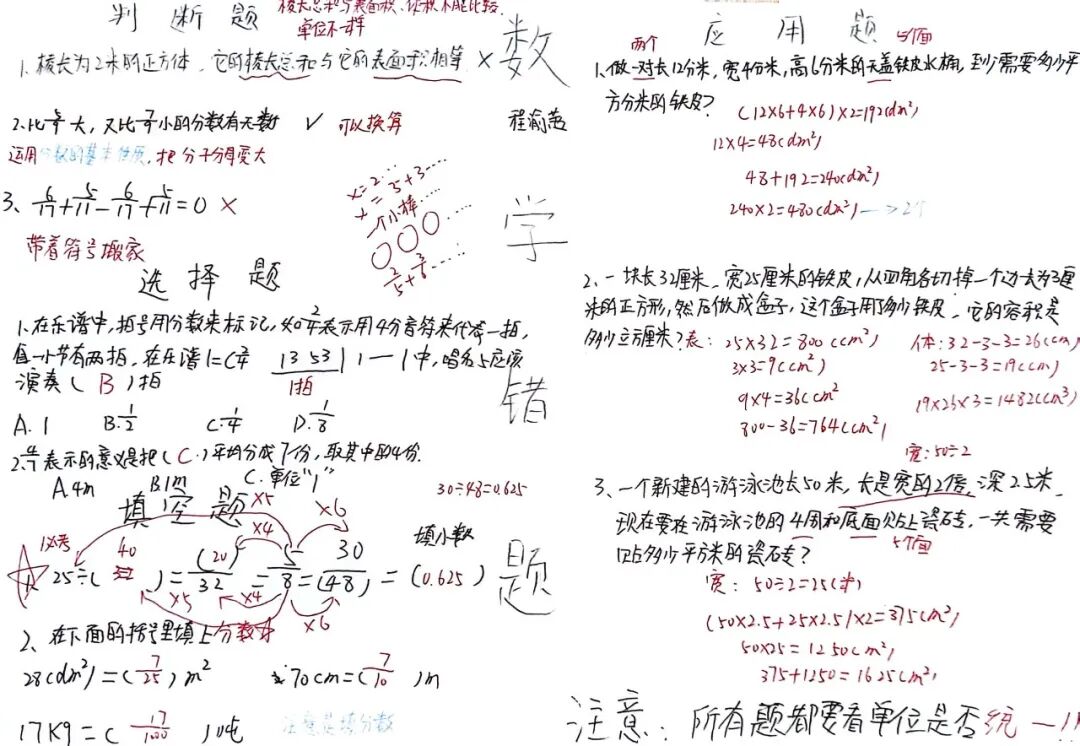 判断题
棱长总和与表面积、体积不能比较,
单位不一样
1. 棱长为2米的正方体,它的棱长总和与它的表面积相等 ×
2. 比 大,又比 小的分数有无数 ✓ 可以换算
运用分数的基本性质,把分子分母变大
3、6/17+5/11-6/17+5/11=0 ×
带着符号搬家
x=2…
一个小棒……
选择题
1. 在乐谱中,拍号用分数来标记,如2/4表示用4分音符来代表一拍,
每一小节有两拍,在乐谱1=C2/4 13 53 | 1 — | 中,唱名5应该
1拍
演奏( B )拍
A. 1 B. 1/2 C. 1/4 D. 1/8
2. 4/7表示的意义是把( C. )平均分成7份,取其中的4份.
A. 4m B. 1m C. 单位"1"
填空题
30÷48=0.625
×5 ×4 ×6
必考 40 填小数
1. 25÷( )=(20)/32=5/8=30/(48)=(0.625)
×5 ×4 ×6
2、在下面的括号里填上分数
28(dm²)=( 7/25 )m² 70cm=( 7/10 )m
17Kg=( 17/1000 )吨 注意是填分数
数
程俞茜
学
错
题
应用题
两个 5个面
1. 做一对长12分米,宽4分米,高6分米的无盖铁皮水桶,至少需要多少平
方分米的铁皮?
(12×6+4×6)×2=192(dm²)
12×4=48(dm²)
48+192=240(dm²)
240×2=480(dm²)—>2个
2. 一块长32厘米、宽25厘米的铁皮,从四角各切掉一个边长为3厘
米的正方形,然后做成盒子,这个盒子用了多少铁皮、它的容积是
多少立方厘米?表:25×32=800(cm²) 体:32-3-3=26(cm)
3×3=9(cm²) 25-3-3=19(cm)
9×4=36(cm² 19×26×3=1482(cm³)
800-36=764(cm²)
宽:50÷2
3、一个新建的游泳池长50米,长是宽的2倍,深2.5米,
现在要在游泳池的4周和底面贴上瓷砖,一共需要
5个面
贴多少平方米的瓷砖?
宽:50÷2=25(米)
(50×2.5+25×2.5)×2=375(m²)
50×25=1250(m²)
375+1250=1625(m²)
注意:所有题都要看单位是否统一!!